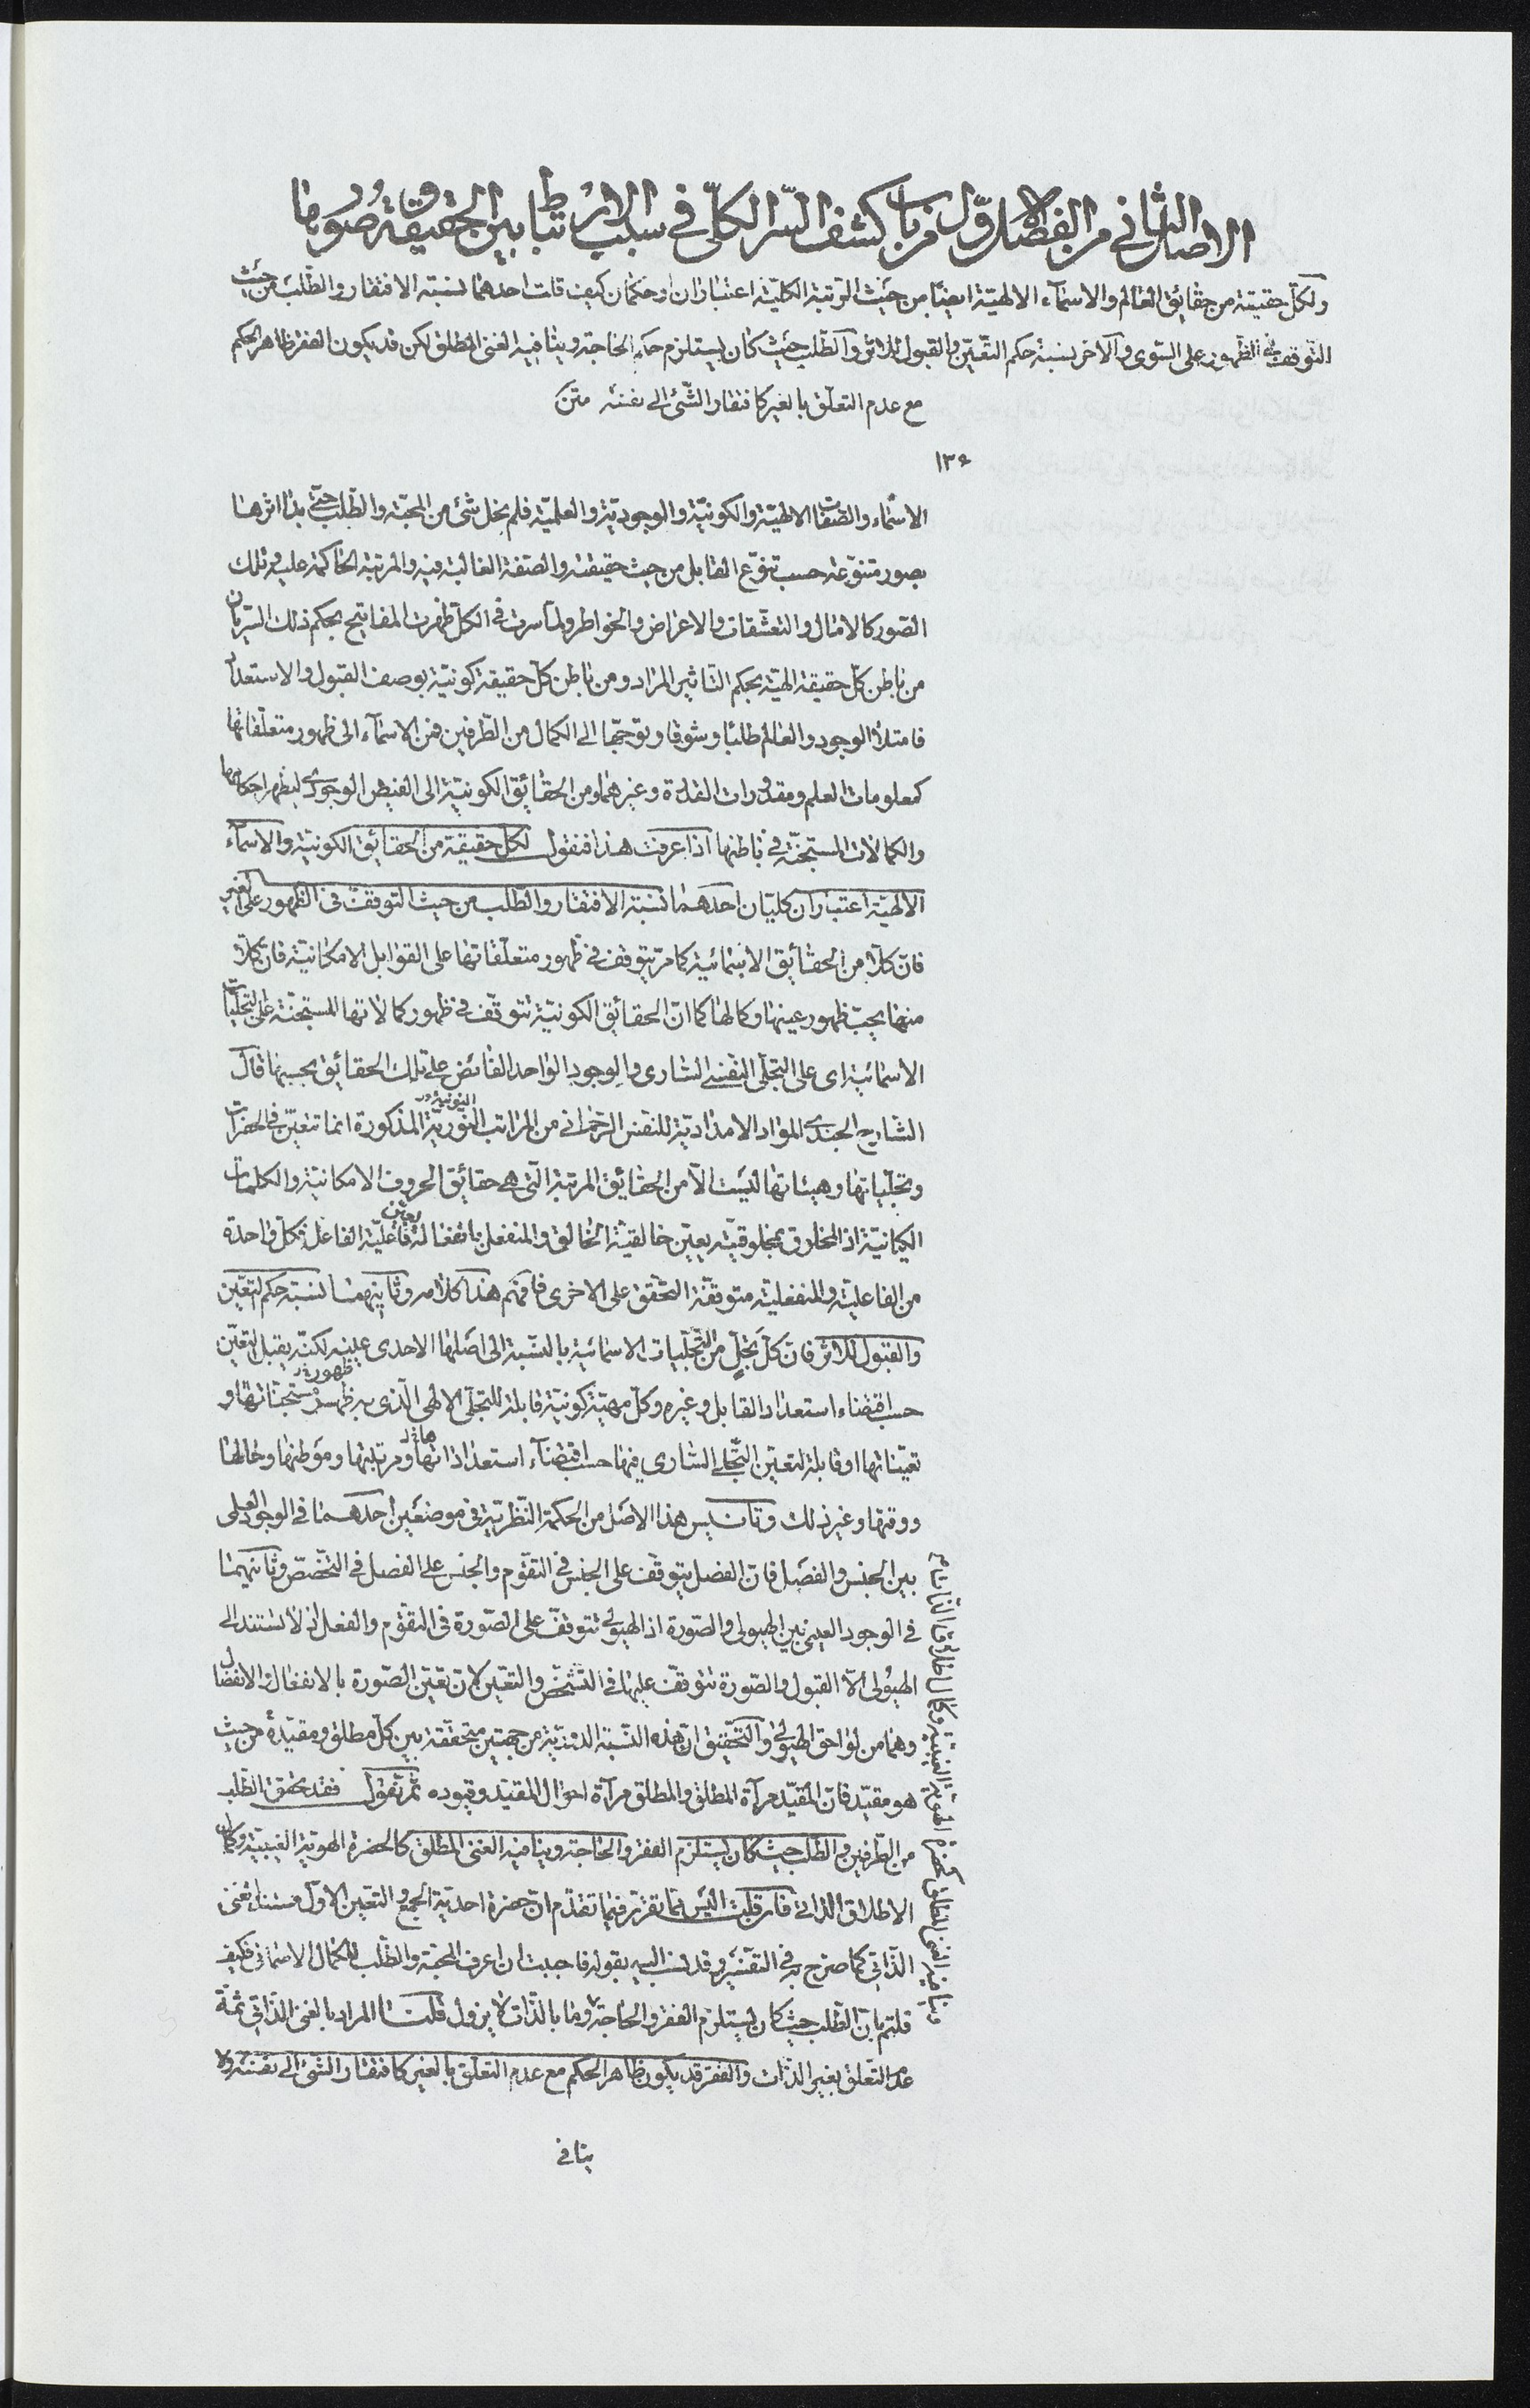 الاصل الثاني من الفصل الاول من باب كشف السر الكلي في سبب الارتباط بين الحق وصورها
ولكل حقيقة من حقائق العالم والاسماء الالهية ايضا من حيث الرتبة الكلية اعتباران او حكمان كيف قلت احدهما نسبة الافتقار والطلب من حيث
التوقف في الظهور على السوى والآخر نسبة حكم التعين والقبول للاثر والطلب حيث كان يستلزم الحاجة وينافيه الغنى المطلق لكن قد يكون الفقر ظاهر الحكم
مع عدم التعلق بالغير كافتقار الشئ الى نفسه متن
الاسماء والصفات الالهية والكونية والوجودية والعلمية فلم يخل شئ من المحبة والطلب حتى بدا اثرها
بصور متنوعة حسب تنوع القابل من حيث حقيقته والصفة الغالبة فيه والمرتبة الحاكمة عليه وتلك
الصور كالامال والتعشقات والاعراض والخواطر ولما سرت في الكل ظهرت المفاتيح بحكم ذلك السريان
من باطن كل حقيقة الهية بحكم التاثير المراد ومن باطن كل حقيقة كونية بوصف القبول والاستعداد
فامتلأ الوجود والعالم طلبا وشوقا وتوجها الى الكمال من الطرفين فمن الاسماء الى ظهور متعلقاتها
كمعلومات العلم ومقدورات القدرة وغيرهما ومن الحقائق الكونية الى الفيض الوجودي ليظهر احكامها
والكمالات المستجنة في باطنها اذا عرفت هذا فنقول لكل حقيقة من الحقائق الكونية والاسماء
الالهية اعتباران كليان احدهما نسبة الافتقار والطلب من حيث التوقف في الظهور على الغير
فان كلا من الحقائق الاسمائية كما مر يتوقف في ظهور متعلقاتها على القوابل الامكانية فان كلا
منها يحب ظهور عينها وكمالها كما ان الحقائق الكونية تتوقف في ظهور كمالاتها المستجنة على التجليات
الاسمائية اى على التجلى النفسى السارى والوجود الواحد الفائض على تلك الحقائق بحسبها قال
الشارح الجندى المواد الامدادية للنفس الرحمانى من المراتب النورية المذكورة انما تتعين في الحضرات
وتجلياتها وهيئاتها ليست الا من الحقائق المرتبة التى هى حقائق الحروف الامكانية والكلمات
الكيانية اذ المخلوق بمخلوقيته يعين خالقية الخالق والمنفعل بانفعاله فاعلية الفاعل فكل واحدة
من الفاعلية والمنفعلية متوقفة التحقق على الاخرى فافهم هذا كلامه وثانيهما نسبة حكم التعين
والقبول للاثر فان كل تجل من التجليات الاسمائية بالنسبة الى اصلها الاحدى عينه لكنه يقبل التعين
حسب اقتضاء استعداد القابل وغيره وكل مهية كونية قابلة للتجلى الالهى الذى به ظهور مستجناتها و
تعيناتها او قابلة لتعين التجلى السارى فيها حسب اقتضاء استعداداتها ومرتبتها وموطنها وحالها
ووقتها وغير ذلك وتانيس هذا الاصل من الحكمة النظرية في موضعين احدهما في الوجود العلمى
بين الجنس والفصل فان الفصل يتوقف على الجنس في التقوم والجنس على الفصل في التخصص وثانيهما
في الوجود العينى بين الهيولى والصورة اذ الهيولى تتوقف على الصورة في التقوم والفعل اذ لا يستند الى
الهيولى الا القبول والصورة تتوقف عليها في التشخص والتعين لان تعين الصورة بالانفعال والانفصال
وهما من لواحق الهيولى والتحقيق ان هذه النسبة الدورية من جهتين متحققة بين كل مطلق ومقيدة من حيث
هو مقيد فان المقيد مرآة المطلق والمطلق مرآة احوال المقيد وقيوده ثم نقول فقد تحقق الطلب
من الطرفين والطلب حيث كان يستلزم الفقر والحاجة وينافيه الغنى المطلق كالحضرة الهوية الغيبية وكمال
الاطلاق الذاتى فان قلت اليس مما تقرر فيما تقدم ان حضرة احدية الجمع والتعين الاول مستند الغنى
الذاتى كما صرح به في التفسير وقد نسب اليه بقوله فاحببت ان اعرف المحبة والطلب للكمال الاسمائى فكيف
قلتم بان الطلب حيث كان يستلزم الفقر والحاجة وما بالذات لا يزول قلت المراد بالغنى الذاتى ثمة
عدم التعلق بغير الذات والفقر قد يكون ظاهر الحكم مع عدم التعلق بالغير كافتقار الشئ الى نفسه ولا
ينافى